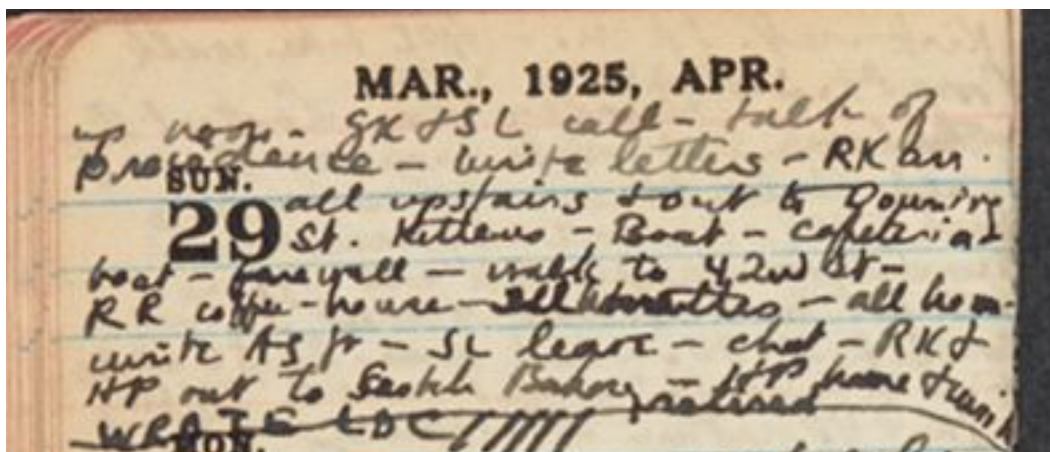 MAR., 1925, APR.
up noon - GK & SL call - talk of
providence - write letters - RK arr.
SUN.
29 all upstairs & out to Downing
St. Kittens - Boat - cafeteria -
boat - farewall - walk to 42nd St -
RR coffee-house - - all home
write AS jr - SL leave - chat - RK &
HP out to Scotch Bakery - HP home & write
retired
WROTE LDC
MON.